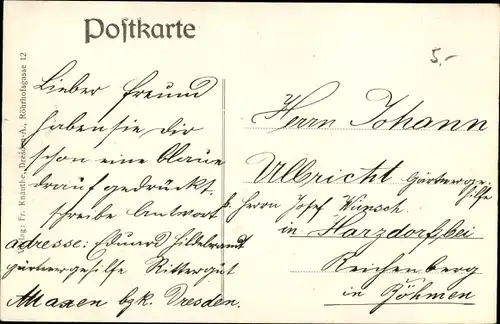 Postkarte
5.-
Verlag: Fr. Knauthe, Dresden-A., Röhrhofsgasse 12
Lieber Freund
haben sie Dir
schon eine blaue
drauf gedrückt.
schreibe Antwort
adresse: Eduuard Hildebrandt
gärtnergehilfe Rittergut
Maxen bzk. Dresden.
Herrn Johann
Ulbricht Gärtnerge-
hilfe
b. Herrn Josef Wünsch
in Harzdorf bei
Reichenberg
in Böhmen